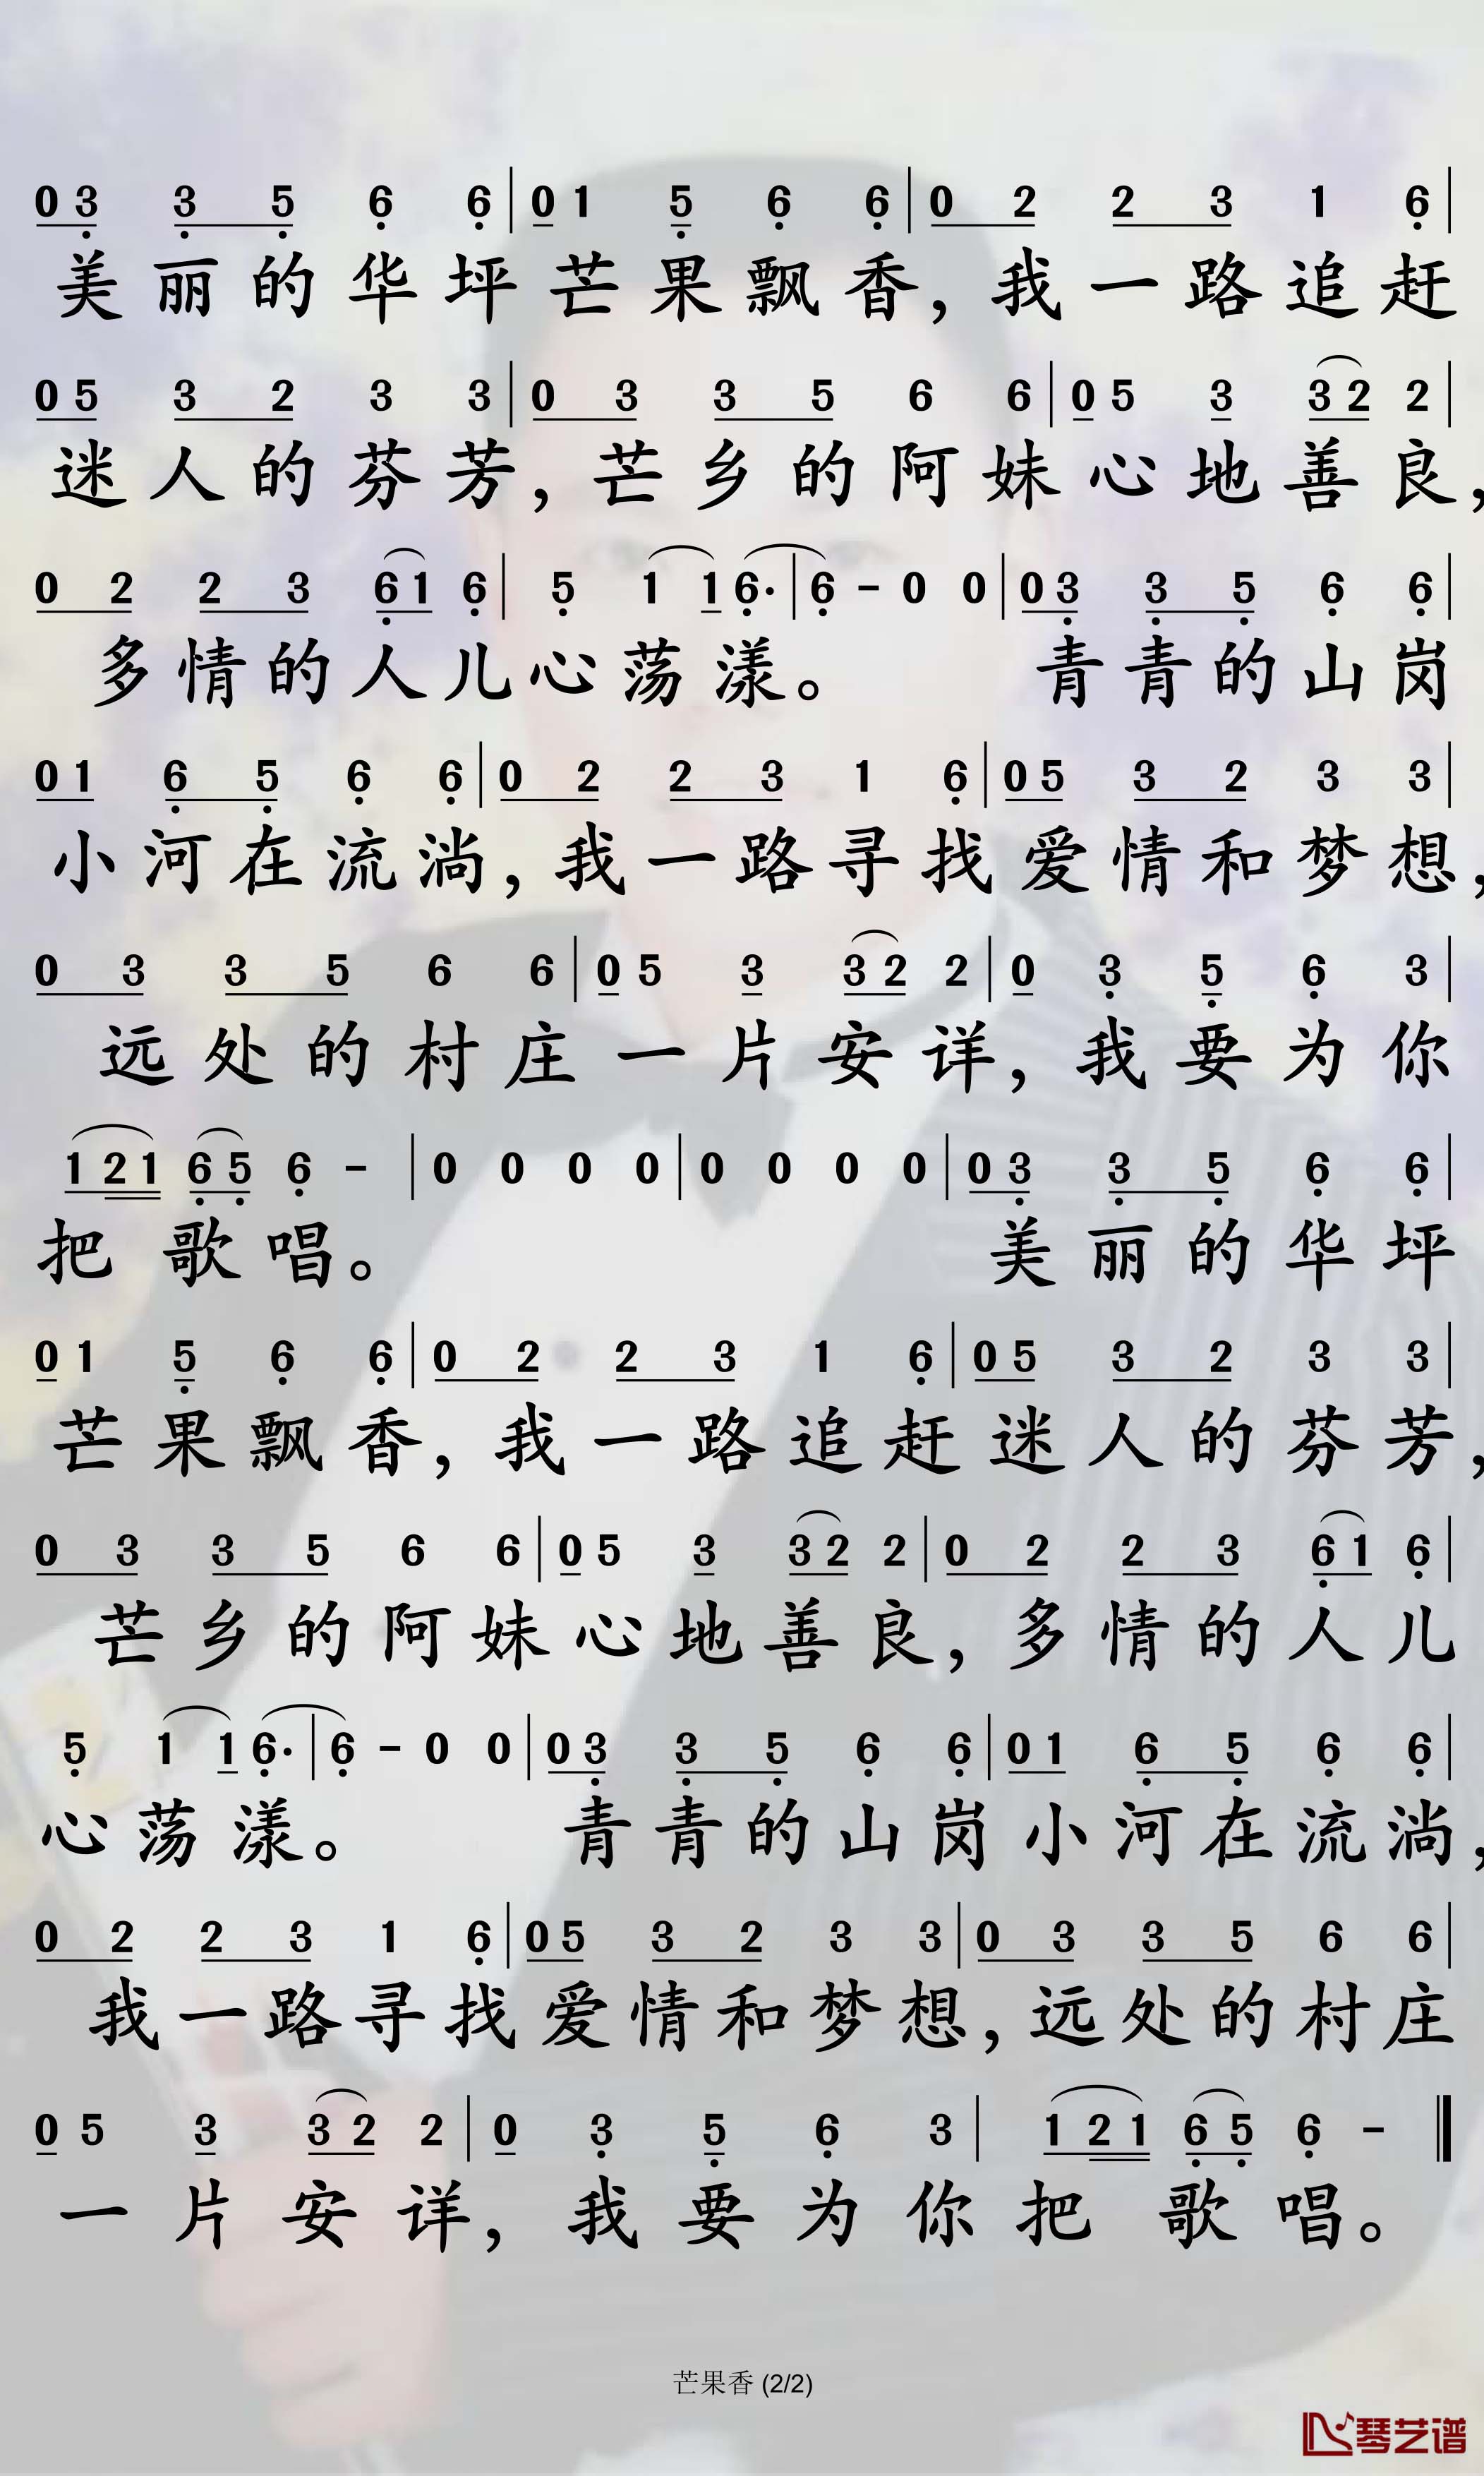 0 3 3 5 6 6 | 0 1 5 6 6 | 0 2 2 3 1 6 |
美丽的华坪芒果飘香，我一路追赶
0 5 3 2 3 3 | 0 3 3 5 6 6 | 0 5 3 3 2 2 |
迷人的芬芳，芒乡的阿妹心地善良，
0 2 2 3 6 1 6 | 5 1 1 6· | 6 - 0 0 | 0 3 3 5 6 6 |
多情的人儿心荡漾。 青青的山岗
0 1 6 5 6 6 | 0 2 2 3 1 6 | 0 5 3 2 3 3 |
小河在流淌，我一路寻找爱情和梦想，
0 3 3 5 6 6 | 0 5 3 3 2 2 | 0 3 5 6 3 |
远处的村庄一片安详，我要为你
1 2 1 6 5 6 - | 0 0 0 0 | 0 0 0 0 | 0 3 3 5 6 6 |
把歌唱。 美丽的华坪
0 1 5 6 6 | 0 2 2 3 1 6 | 0 5 3 2 3 3 |
芒果飘香，我一路追赶迷人的芬芳，
0 3 3 5 6 6 | 0 5 3 3 2 2 | 0 2 2 3 6 1 6 |
芒乡的阿妹心地善良，多情的人儿
5 1 1 6· | 6 - 0 0 | 0 3 3 5 6 6 | 0 1 6 5 6 6 |
心荡漾。 青青的山岗小河在流淌，
0 2 2 3 1 6 | 0 5 3 2 3 3 | 0 3 3 5 6 6 |
我一路寻找爱情和梦想，远处的村庄
0 5 3 3 2 2 | 0 3 5 6 3 | 1 2 1 6 5 6 - ‖
一片安详，我要为你把歌唱。
芒果香 (2/2)
琴艺谱